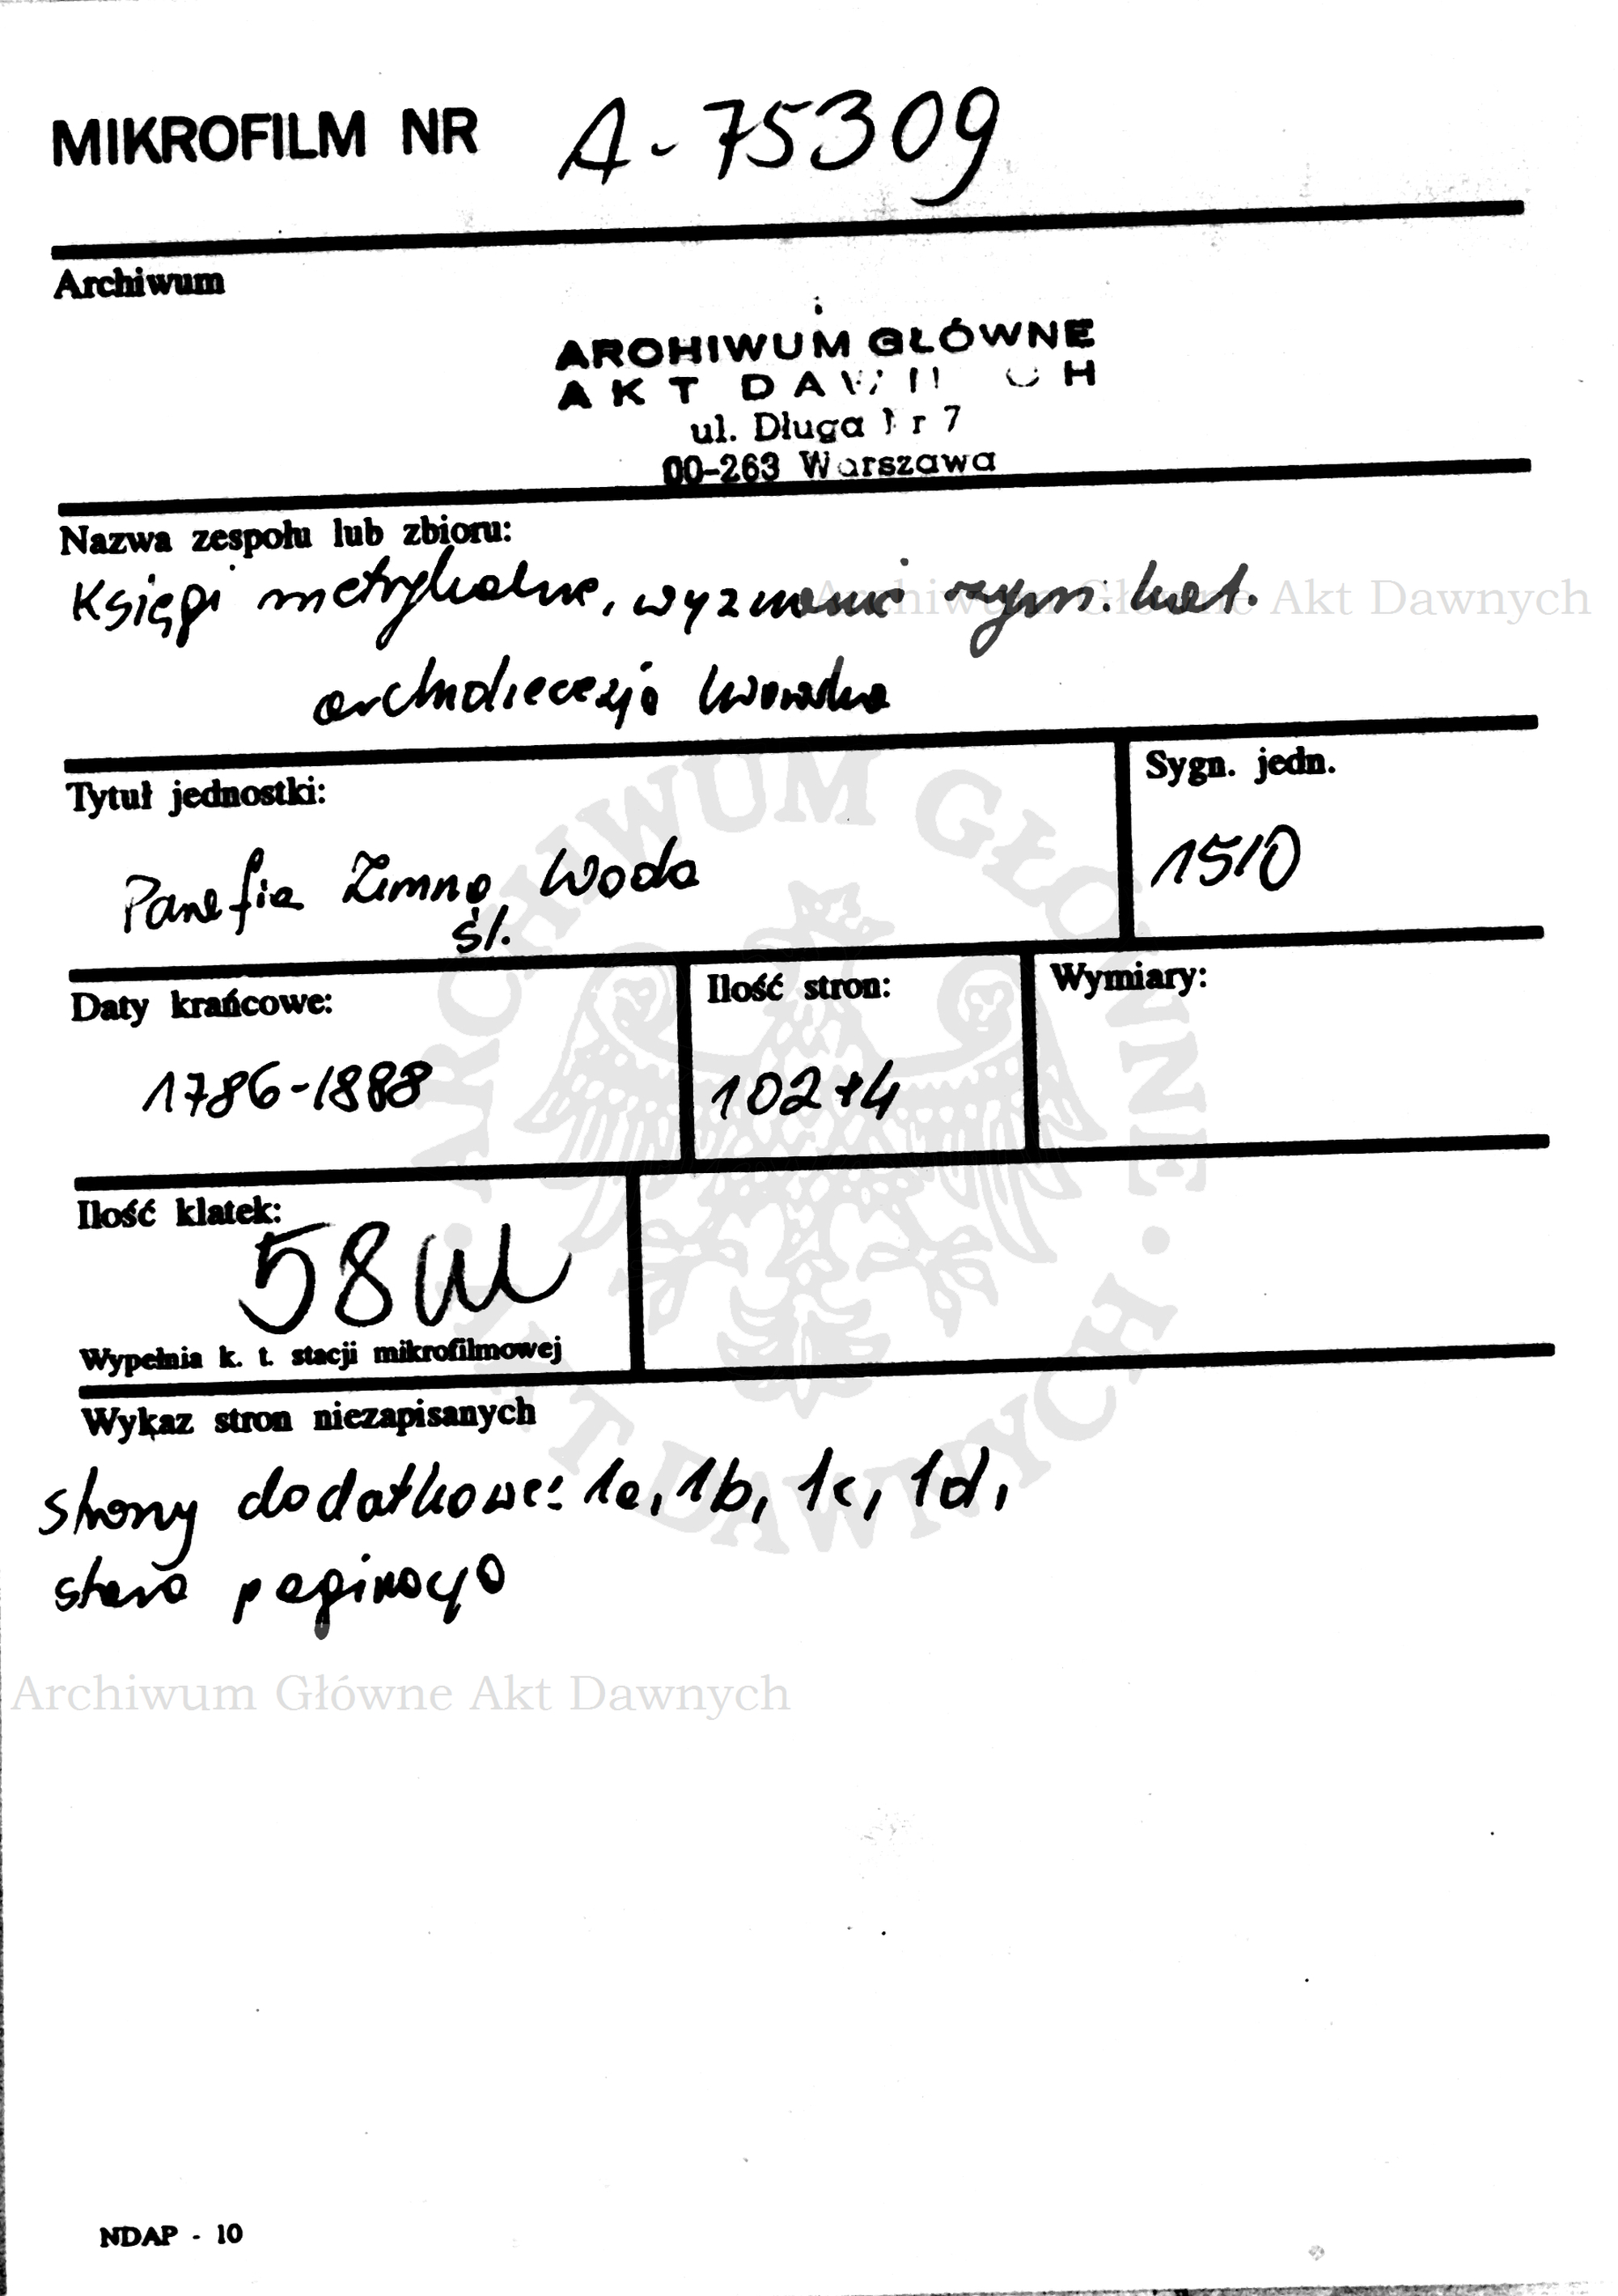 MIKROFILM NR A-75309
Archiwum
ARCHIWUM GŁÓWNE
AKT DAWNYCH
ul. Długa Nr 7
00-263 Warszawa
Nazwa zespołu lub zbioru:
Księgi metrykalne, wyznanie rzym. kat.
Archiwum Główne Akt Dawnych
archidiecezja lwowska
Tytuł jednostki:
Sygn. jedn.
Parafia Zimna Woda
śl.
1510
Daty krańcowe:
Ilość stron:
Wymiary:
1786-1888
102+4
Ilość klatek:
58
Wypełnia k. t. stacji mikrofilmowej
Wykaz stron niezapisanych
strony dodatkowe: 1a, 1b, 1c, 1d,
stara paginacja
ARCHIWUM GŁÓWNE · AKT DAWNYCH ·
Archiwum Główne Akt Dawnych
NDAP - 10